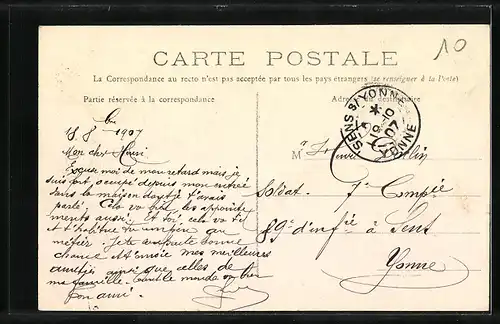 10
CARTE POSTALE
La Correspondance au recto n'est pas acceptée par tous les pays étrangers (se renseigner à la Poste)
Partie réservée à la correspondance
Adresse du destinataire
SENS S/YONNE
YONNE
18 8 1907
Mon cher Henri
Excuse moi de mon retard mais je
suis fort occupé depuis mon entrée
dans la maison dont je t'avais
parlé. Cela va bien, les appointe
ments aussi; et toi, cela va t'il
et t'habitue
métier. Je te souhaite bonne
chance et t'envoie mes meilleures
amitiés ainsi que celles de
ma famille. tout le monde va bien
Ton ami.
M
Soldat. 7e Compie
89e d'infie à Sens
Yonne